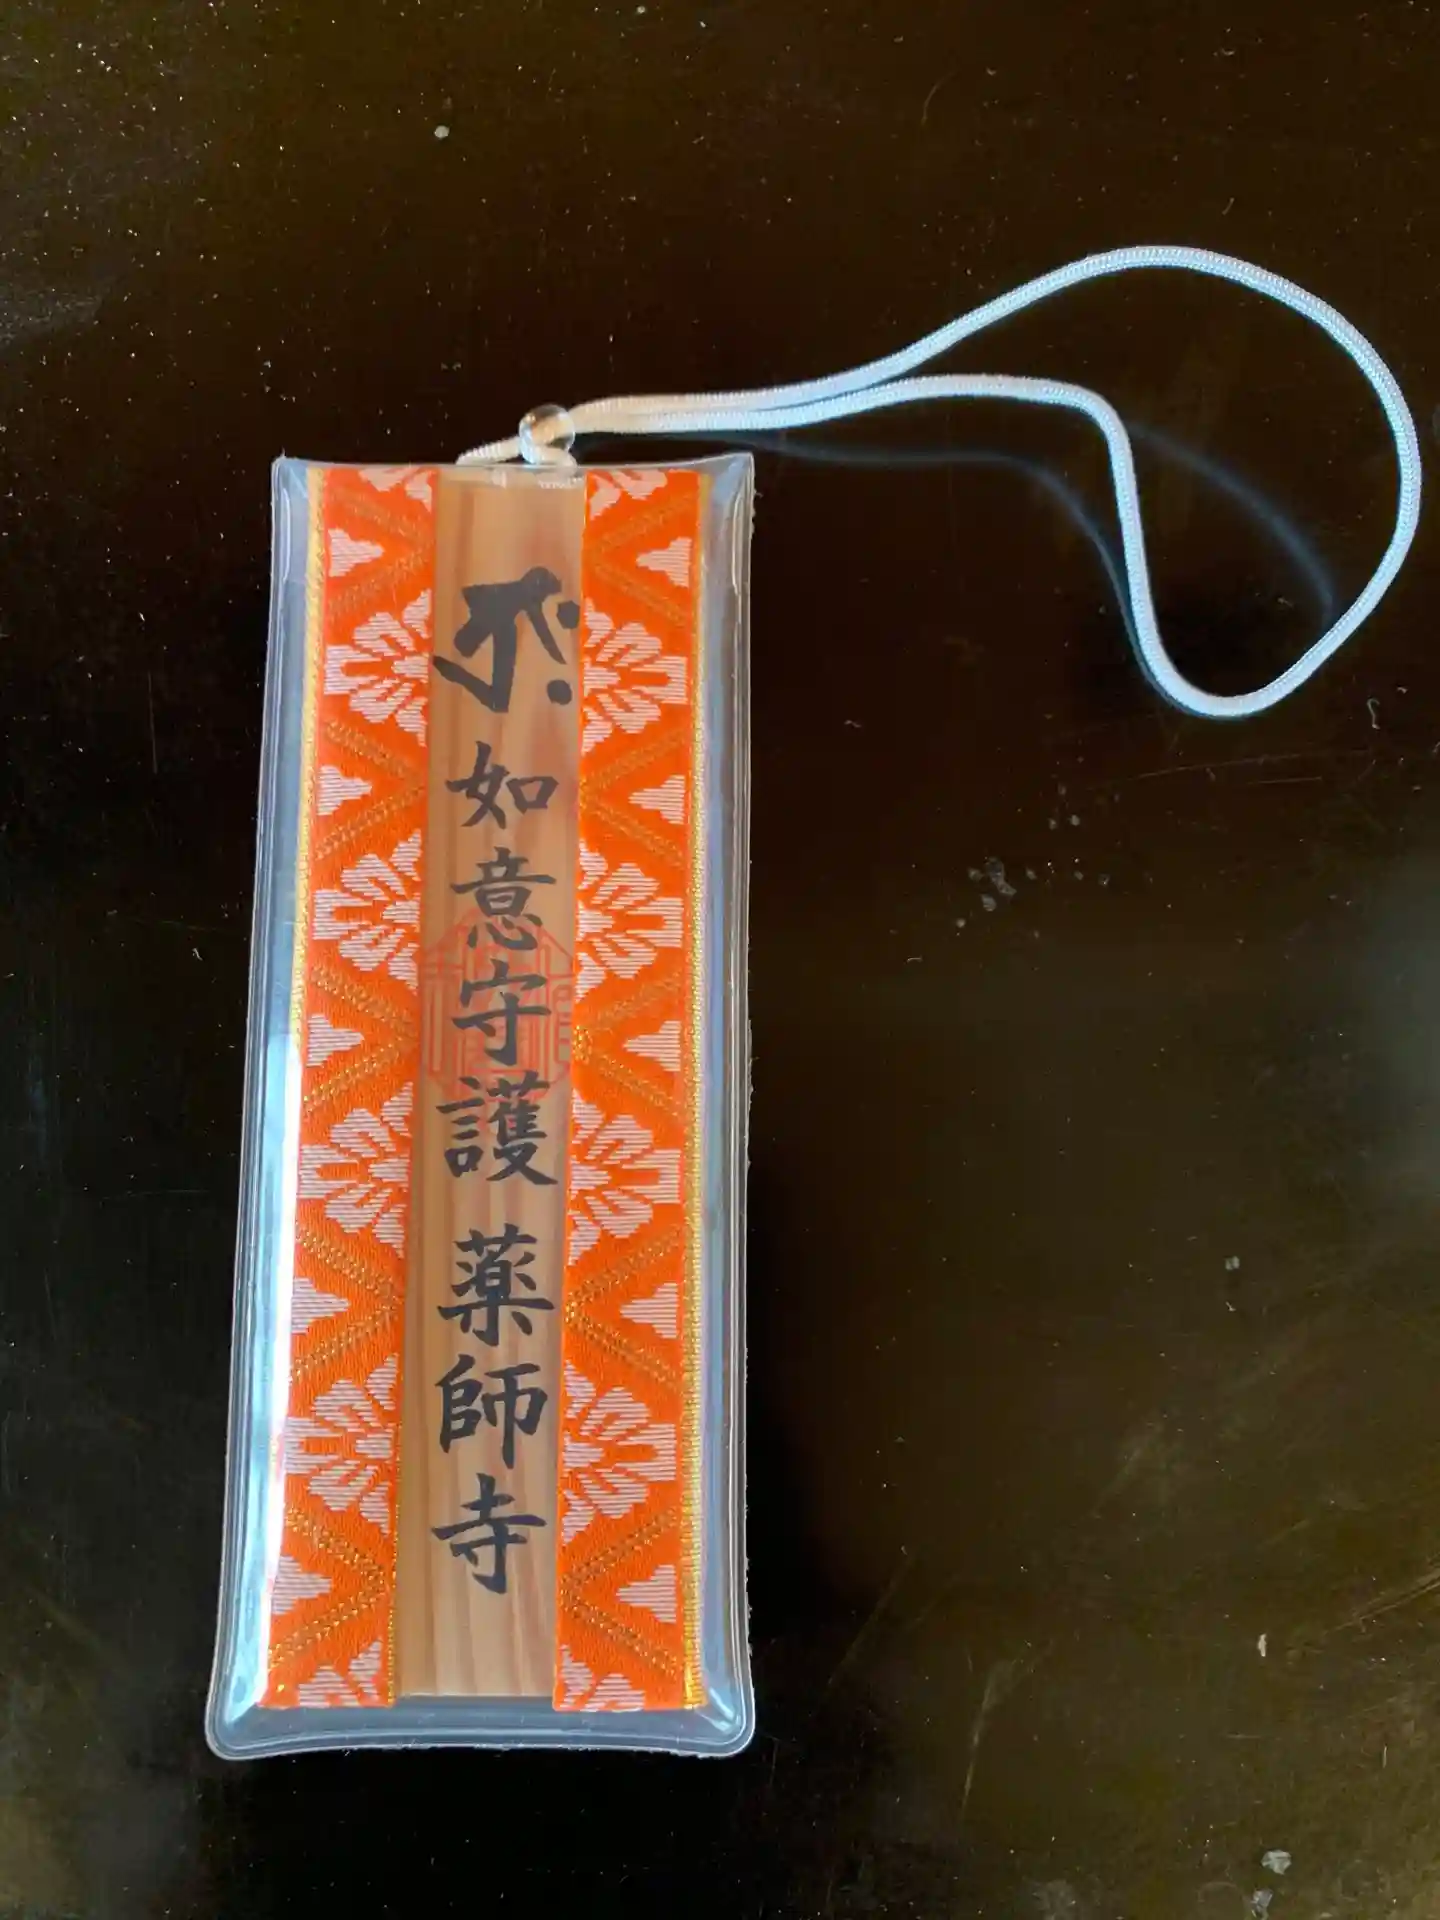 如意守護 薬師寺